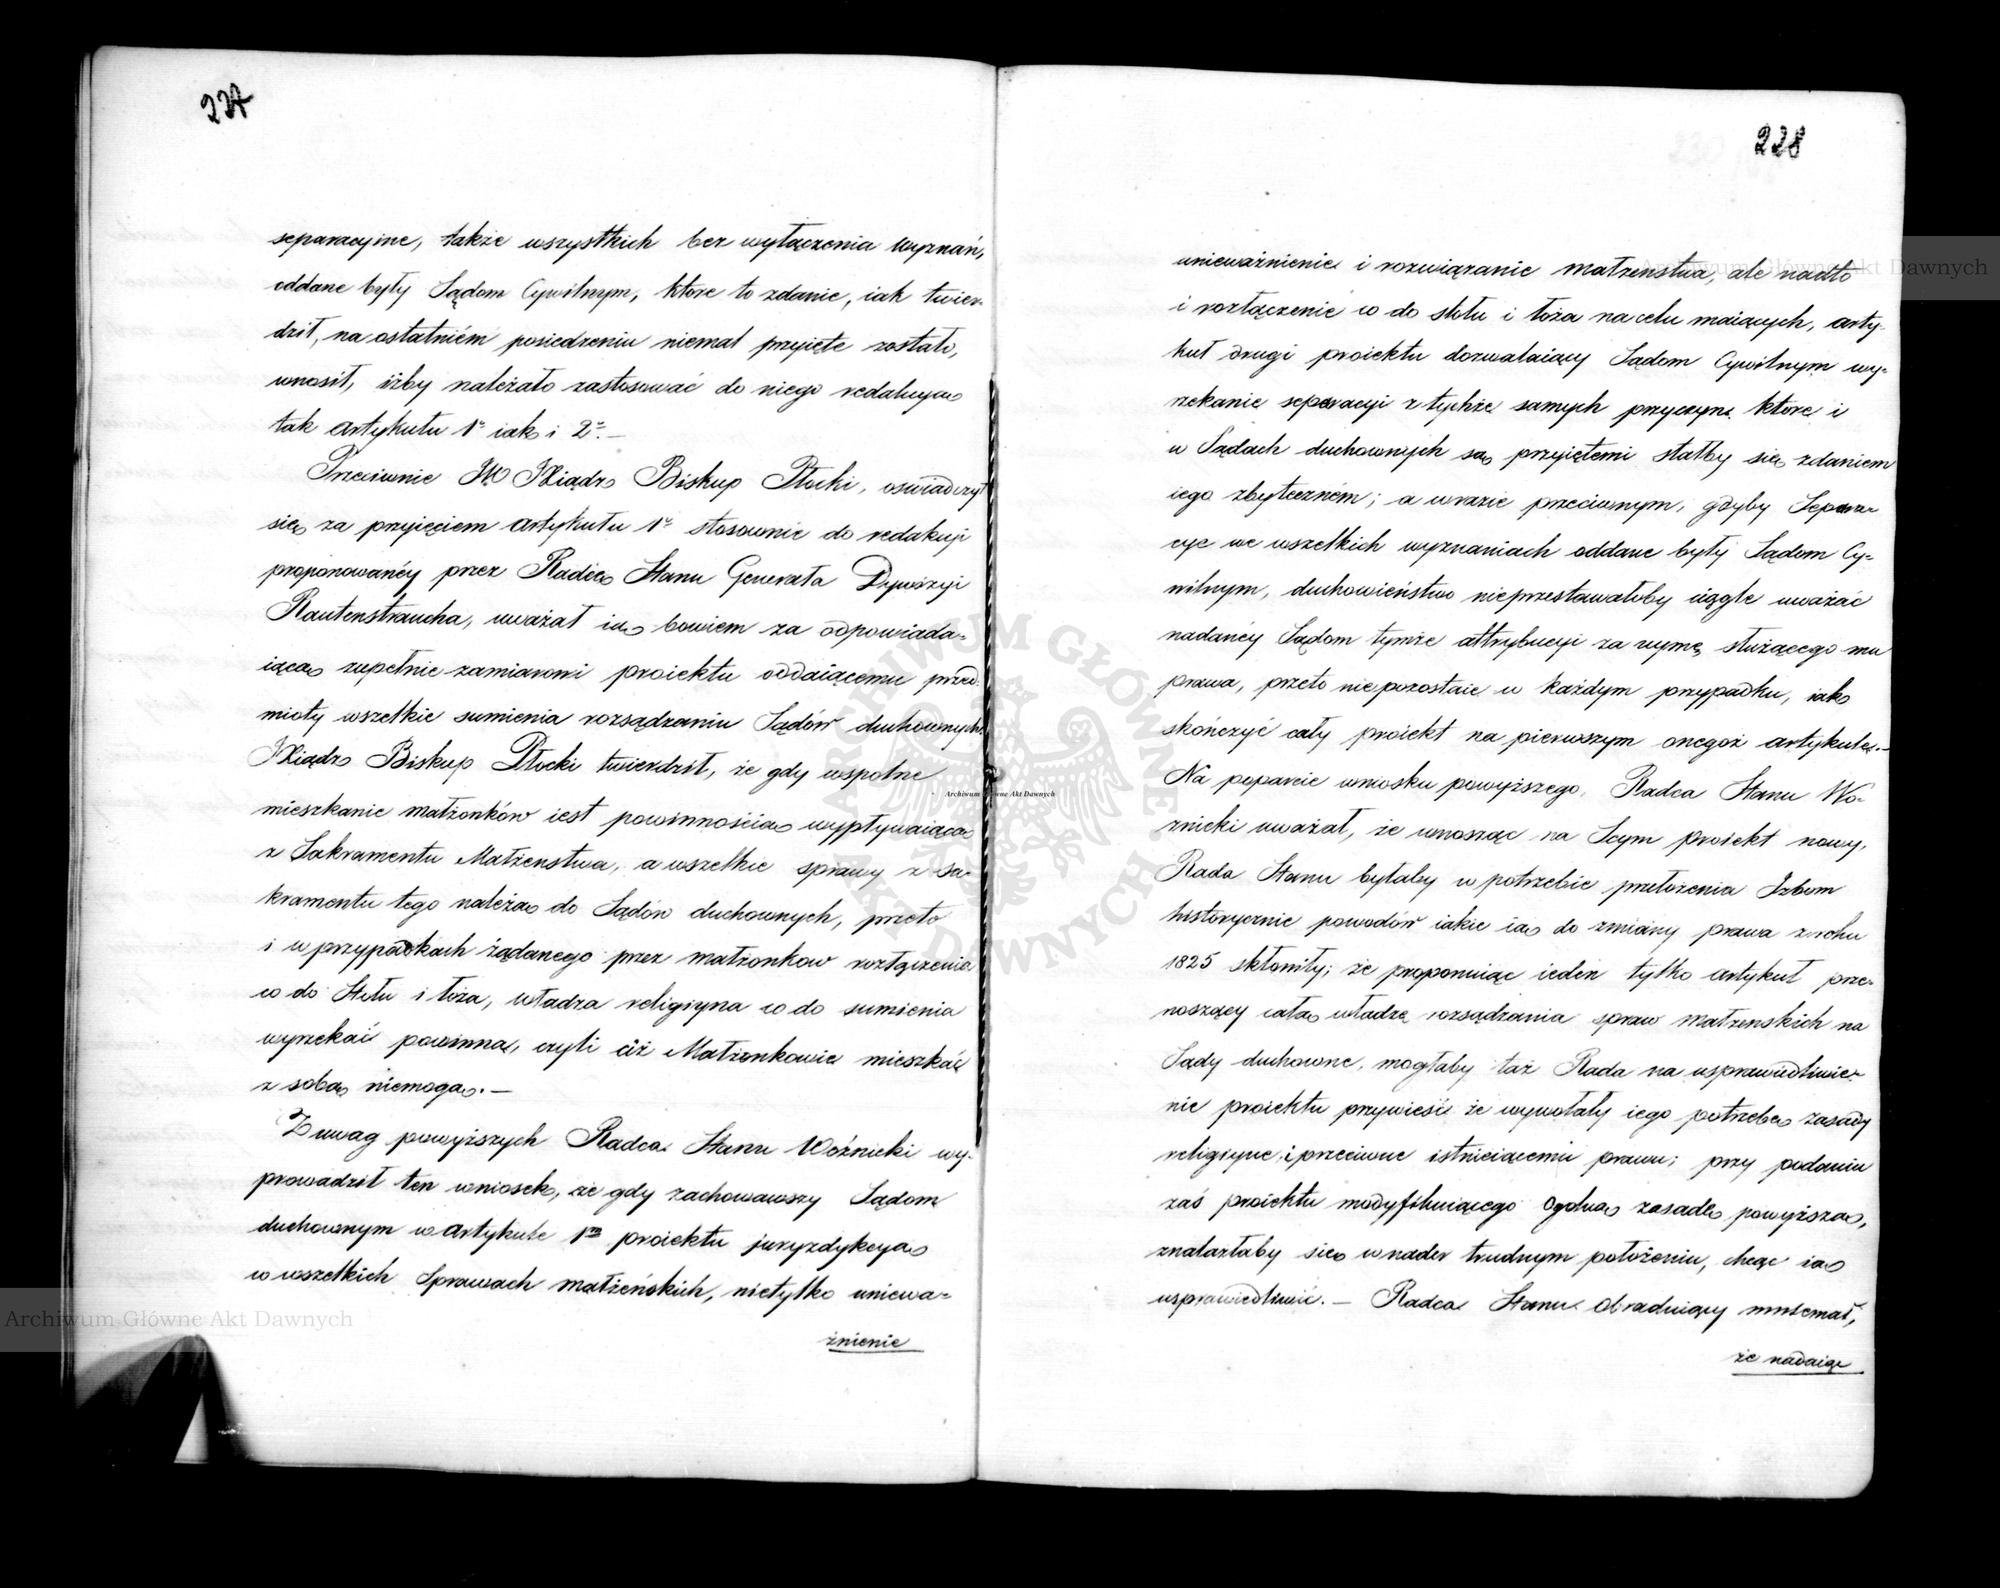 227
separacyine, także wszystkich bez wyłączenia wyznań,
oddane były Sądom Cywilnym, które to zdanie, iak twier-
dził, na ostatniém posiedzeniu niemal przyięte zostało,
wnosił, iżby należało zastosować do niego redakcyą
tak artykułu 1º iako i 2º.—
Przeciwnie JW Xiądz Biskup Płocki, oświadczył
się za przyięciem artykułu 1º stosownie do redakcyi
proponowanéy przez Radcę Stanu Generała Dywizyi
Rautenstraucha, uważał ią bowiem za odpowiada-
iącą zupełnie zamiarowi proiektu oddaiącemu przed-
mioty wszelkie sumienia rozsądzaniu Sądów duchownych.
Xiądz Biskup Płocki twierdził, że gdy wspolne
mieszkanie małżonków iest powinnością wypływaiącą
z Sakramentu Małżeństwa, a wszelkie sprawy z Sa-
kramentu tego należą do Sądów duchownych, przeto
i w przypadkach żądanego przez małżonkow rozłączenia
co do Stołu i łoża, władza religiyna co do sumienia
wyrzekać powinna, czyli ciż Małżonkowie mieszkać
z sobą niemogą.—
Z uwag powyższych Radca Stanu Woźnicki wy-
prowadził ten wniosek, że gdy zachowawszy Sądom
duchownym w artykule 1m proiektu juryzdykcyą
w wszelkich Sprawach małżeńskich, nietylko uniewa-
żnienie
228
unieważnienie i rozwiązanie małżenstwa, ale nadto
i rozłączenie co do stołu i łoża na celu maiących, arty-
kuł drugi proiektu dozwalaiący Sądom Cywilnym wy-
rzekanie separacyi z tychże samych przyczyn które i
w Sądach duchownych są przyiętemi stałby się zdaniem
iego zbyteczném; a w razie przeciwnym, gdyby Separa-
cye we wszelkich wyznaniach oddane były Sądom Cy-
wilnym, duchowieństwo nieprzestawałoby ciągle uważać
nadanéy Sądom tymże attrybucyi za uymę służącego mu
prawa, przeto nie pozostaie w każdym przypadku, iako
skończyć cały proiekt na pierwszym onegoż artykule.—
Na poparcie wniosku powyższego, Radca Stanu Wo-
znicki uważał, że wnosząc na Seym proiekt nowy,
Rada Stanu byłaby w potrzebie przełożenia Izbom
historycznie powodów iakie ią do zmiany prawa z roku
1825 skłoniły; że proponuiąc ieden tylko artykuł prze-
noszący całą władzę rozsądzania spraw małżenskich na
Sądy duchowne, mogłaby taż Rada na usprawiedliwie-
nie proiektu przywieść że wywołały iego potrzebę zasady
religiyne, i przeciwne istnieiącemu prawu; przy podaniu
zaś proiektu modyfikuiącego ogólną zasadę powyższą,
znalazłaby się w nader trudnym położeniu, chcąc ią
usprawiedliwić.— Radca Stanu Obraduiący mniemał,
że nadaiąc
Archiwum Główne Akt Dawnych
Archiwum Główne Akt Dawnych
Archiwum Główne Akt Dawnych
ARCHIWUM GŁÓWNE AKT DAWNYCH